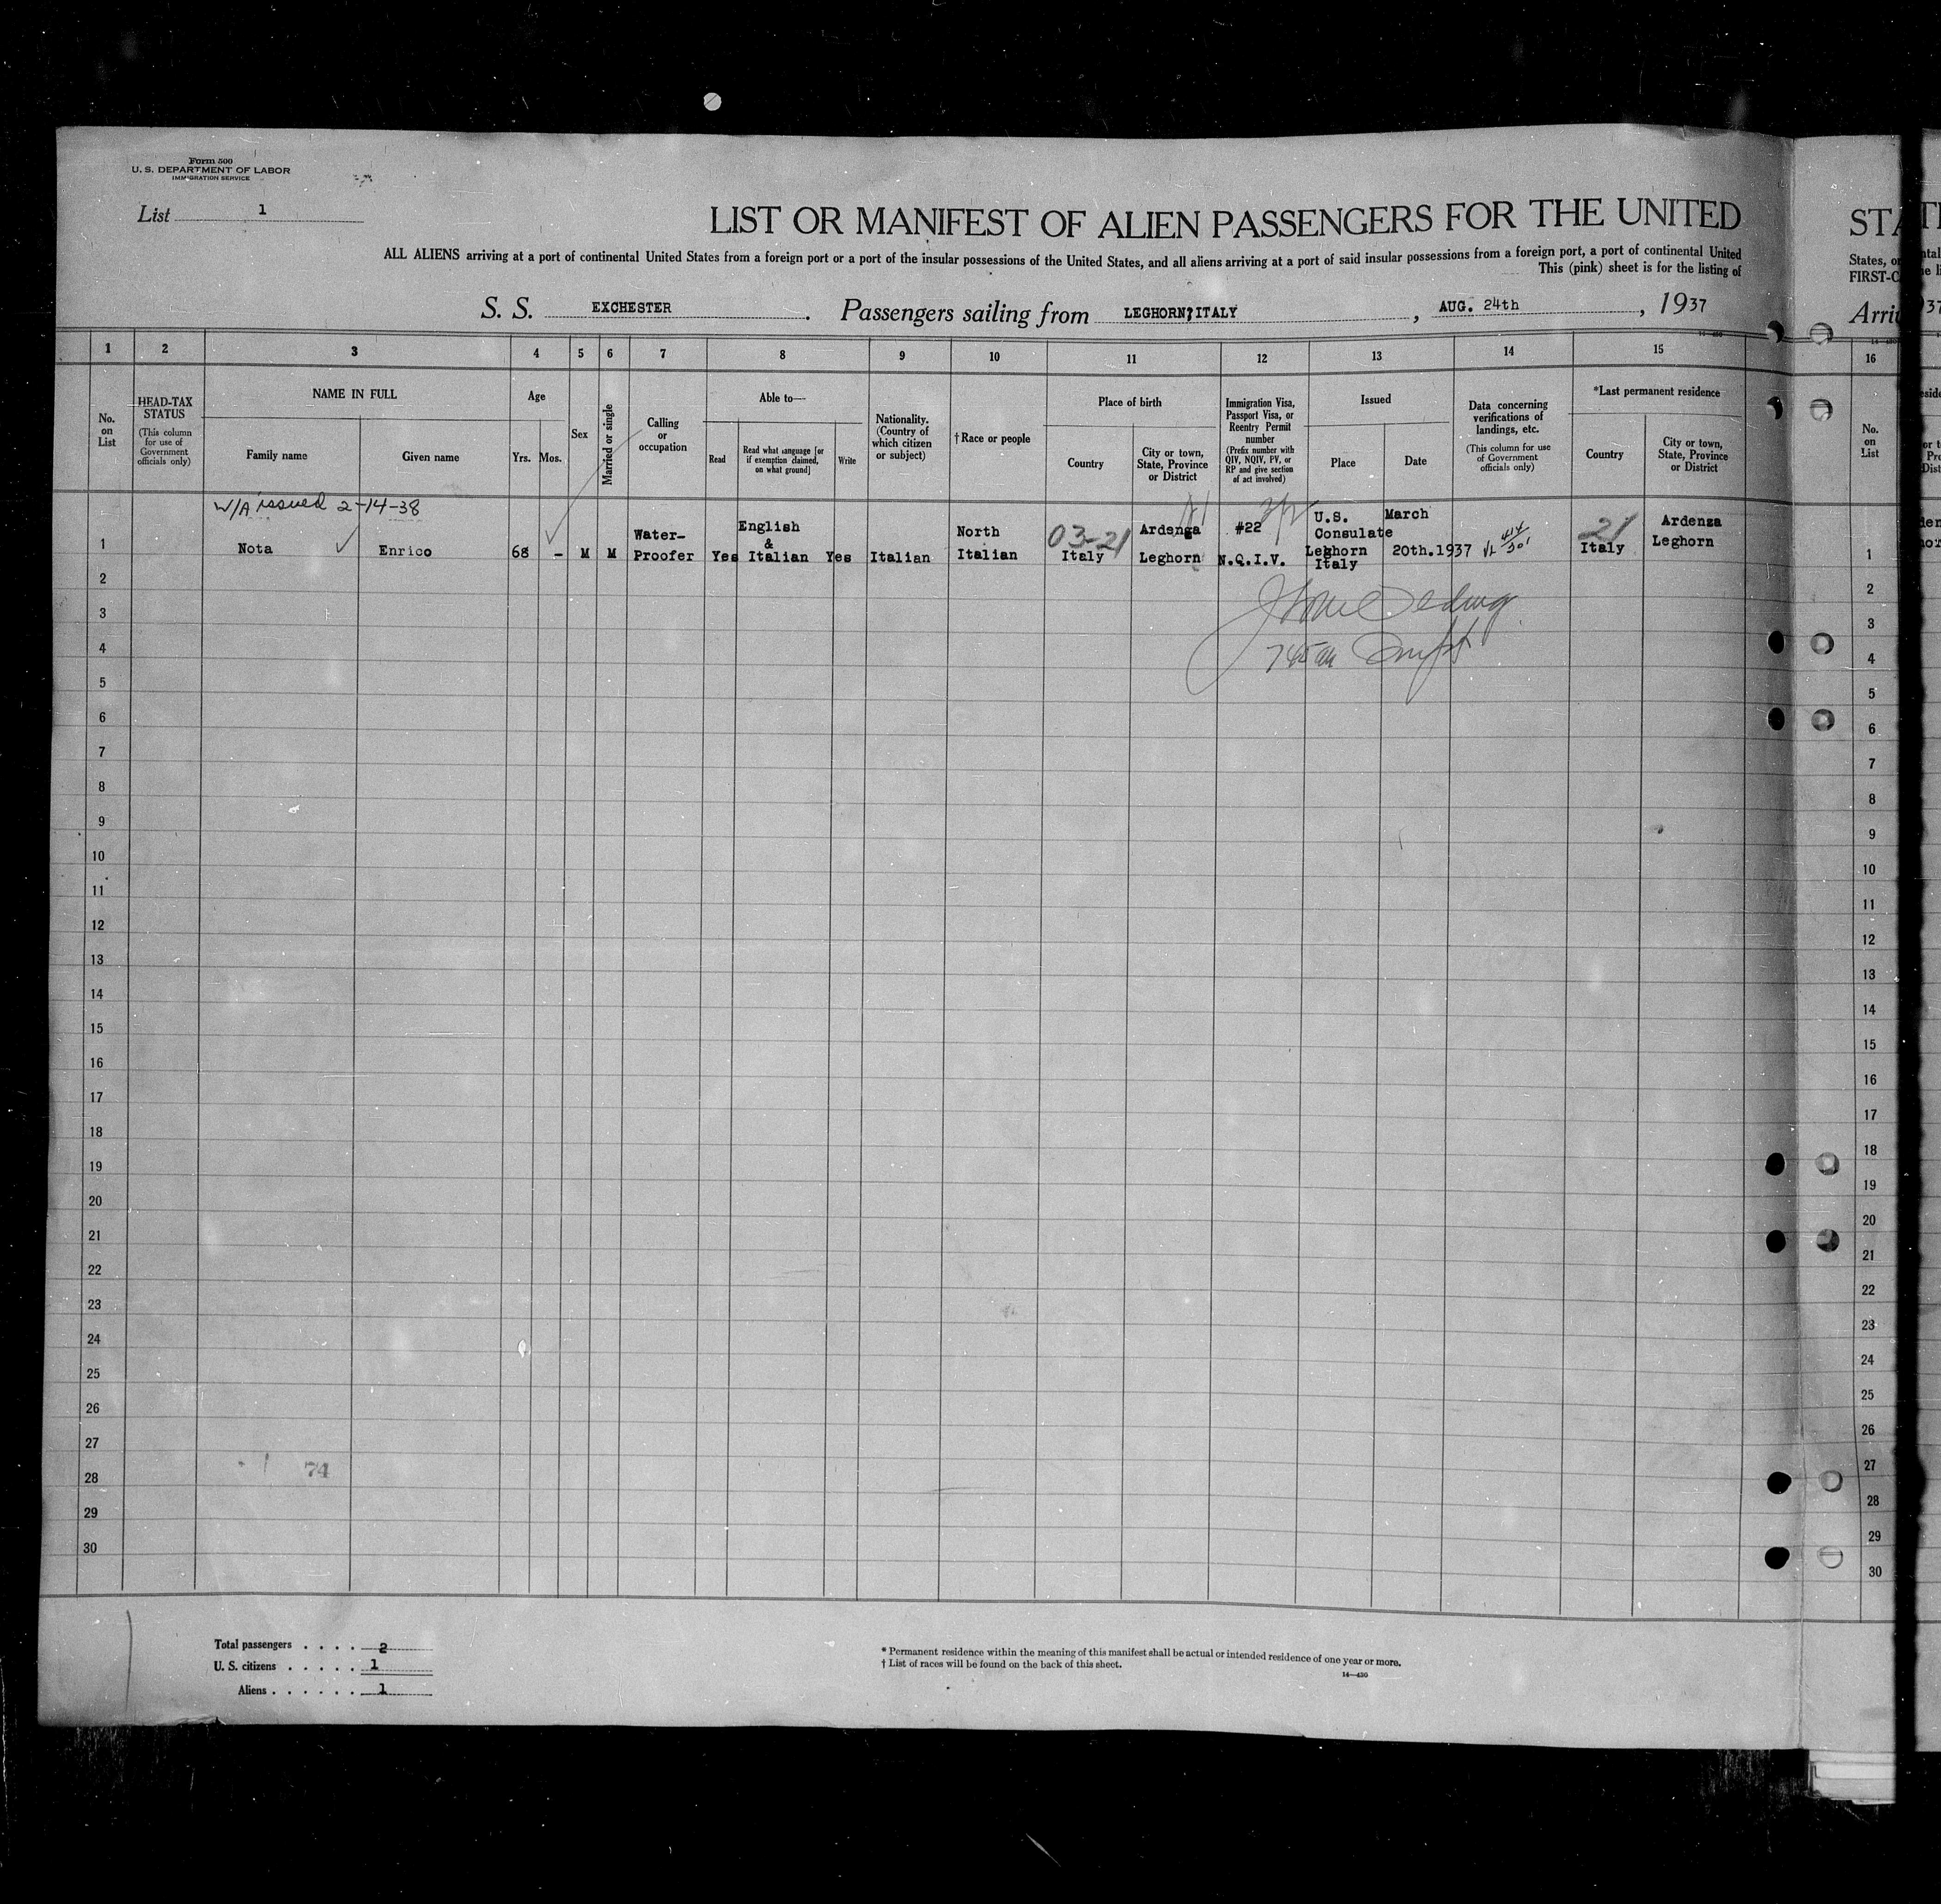 Form 500
U. S. DEPARTMENT OF LABOR
IMMIGRATION SERVICE
List 1
LIST OR MANIFEST OF ALIEN PASSENGERS FOR THE UNITED
ALL ALIENS arriving at a port of continental United States from a foreign port or a port of the insular possessions of the United States, and all aliens arriving at a port of said insular possessions from a foreign port, a port of continental United
This (pink) sheet is for the listing of
S. S. EXCHESTER. Passengers sailing from LEGHORN, ITALY, AUG. 24th, 1937
1 2 3 4 5 6 7 8 9 10 11 12 13 14 15
No. on List
HEAD-TAX STATUS
(This column for use of Government officials only)
NAME IN FULL
Family name
Given name
Age
Yrs. Mos.
Sex
Married or single
Calling or occupation
Able to—
Read
Read what language [or if exemption claimed, on what ground]
Write
Nationality. (Country of which citizen or subject)
†Race or people
Place of birth
Country
City or town, State, Province or District
Immigration Visa, Passport Visa, or Reentry Permit number
(Prefix number with QIV, NQIV, PV, or RP and give section of act involved)
Issued
Place
Date
Data concerning verifications of landings, etc.
(This column for use of Government officials only)
*Last permanent residence
Country
City or town, State, Province or District
W/A issued 2-14-38
1 Nota Enrico 68 - M M Water-Proofer Yes English & Italian Yes Italian North Italian 03-21 Italy Ardenga Leghorn #22 N.Q.I.V. U.S. Consulate Leghorn Italy March 20th.1937 21 Italy Ardenza Leghorn
2
3
4
5
6
7
8
9
10
11
12
13
14
15
16
17
18
19
20
21
22
23
24
25
26
27
74
28
29
30
Total passengers . . . . 2
U. S. citizens . . . . . 1
Aliens . . . . . . 1
* Permanent residence within the meaning of this manifest shall be actual or intended residence of one year or more.
† List of races will be found on the back of this sheet.
14—430
STA
States, or
FIRST-C
Arri
16
No. on List
1
2
3
4
5
6
7
8
9
10
11
12
13
14
15
16
17
18
19
20
21
22
23
24
25
26
27
28
29
30